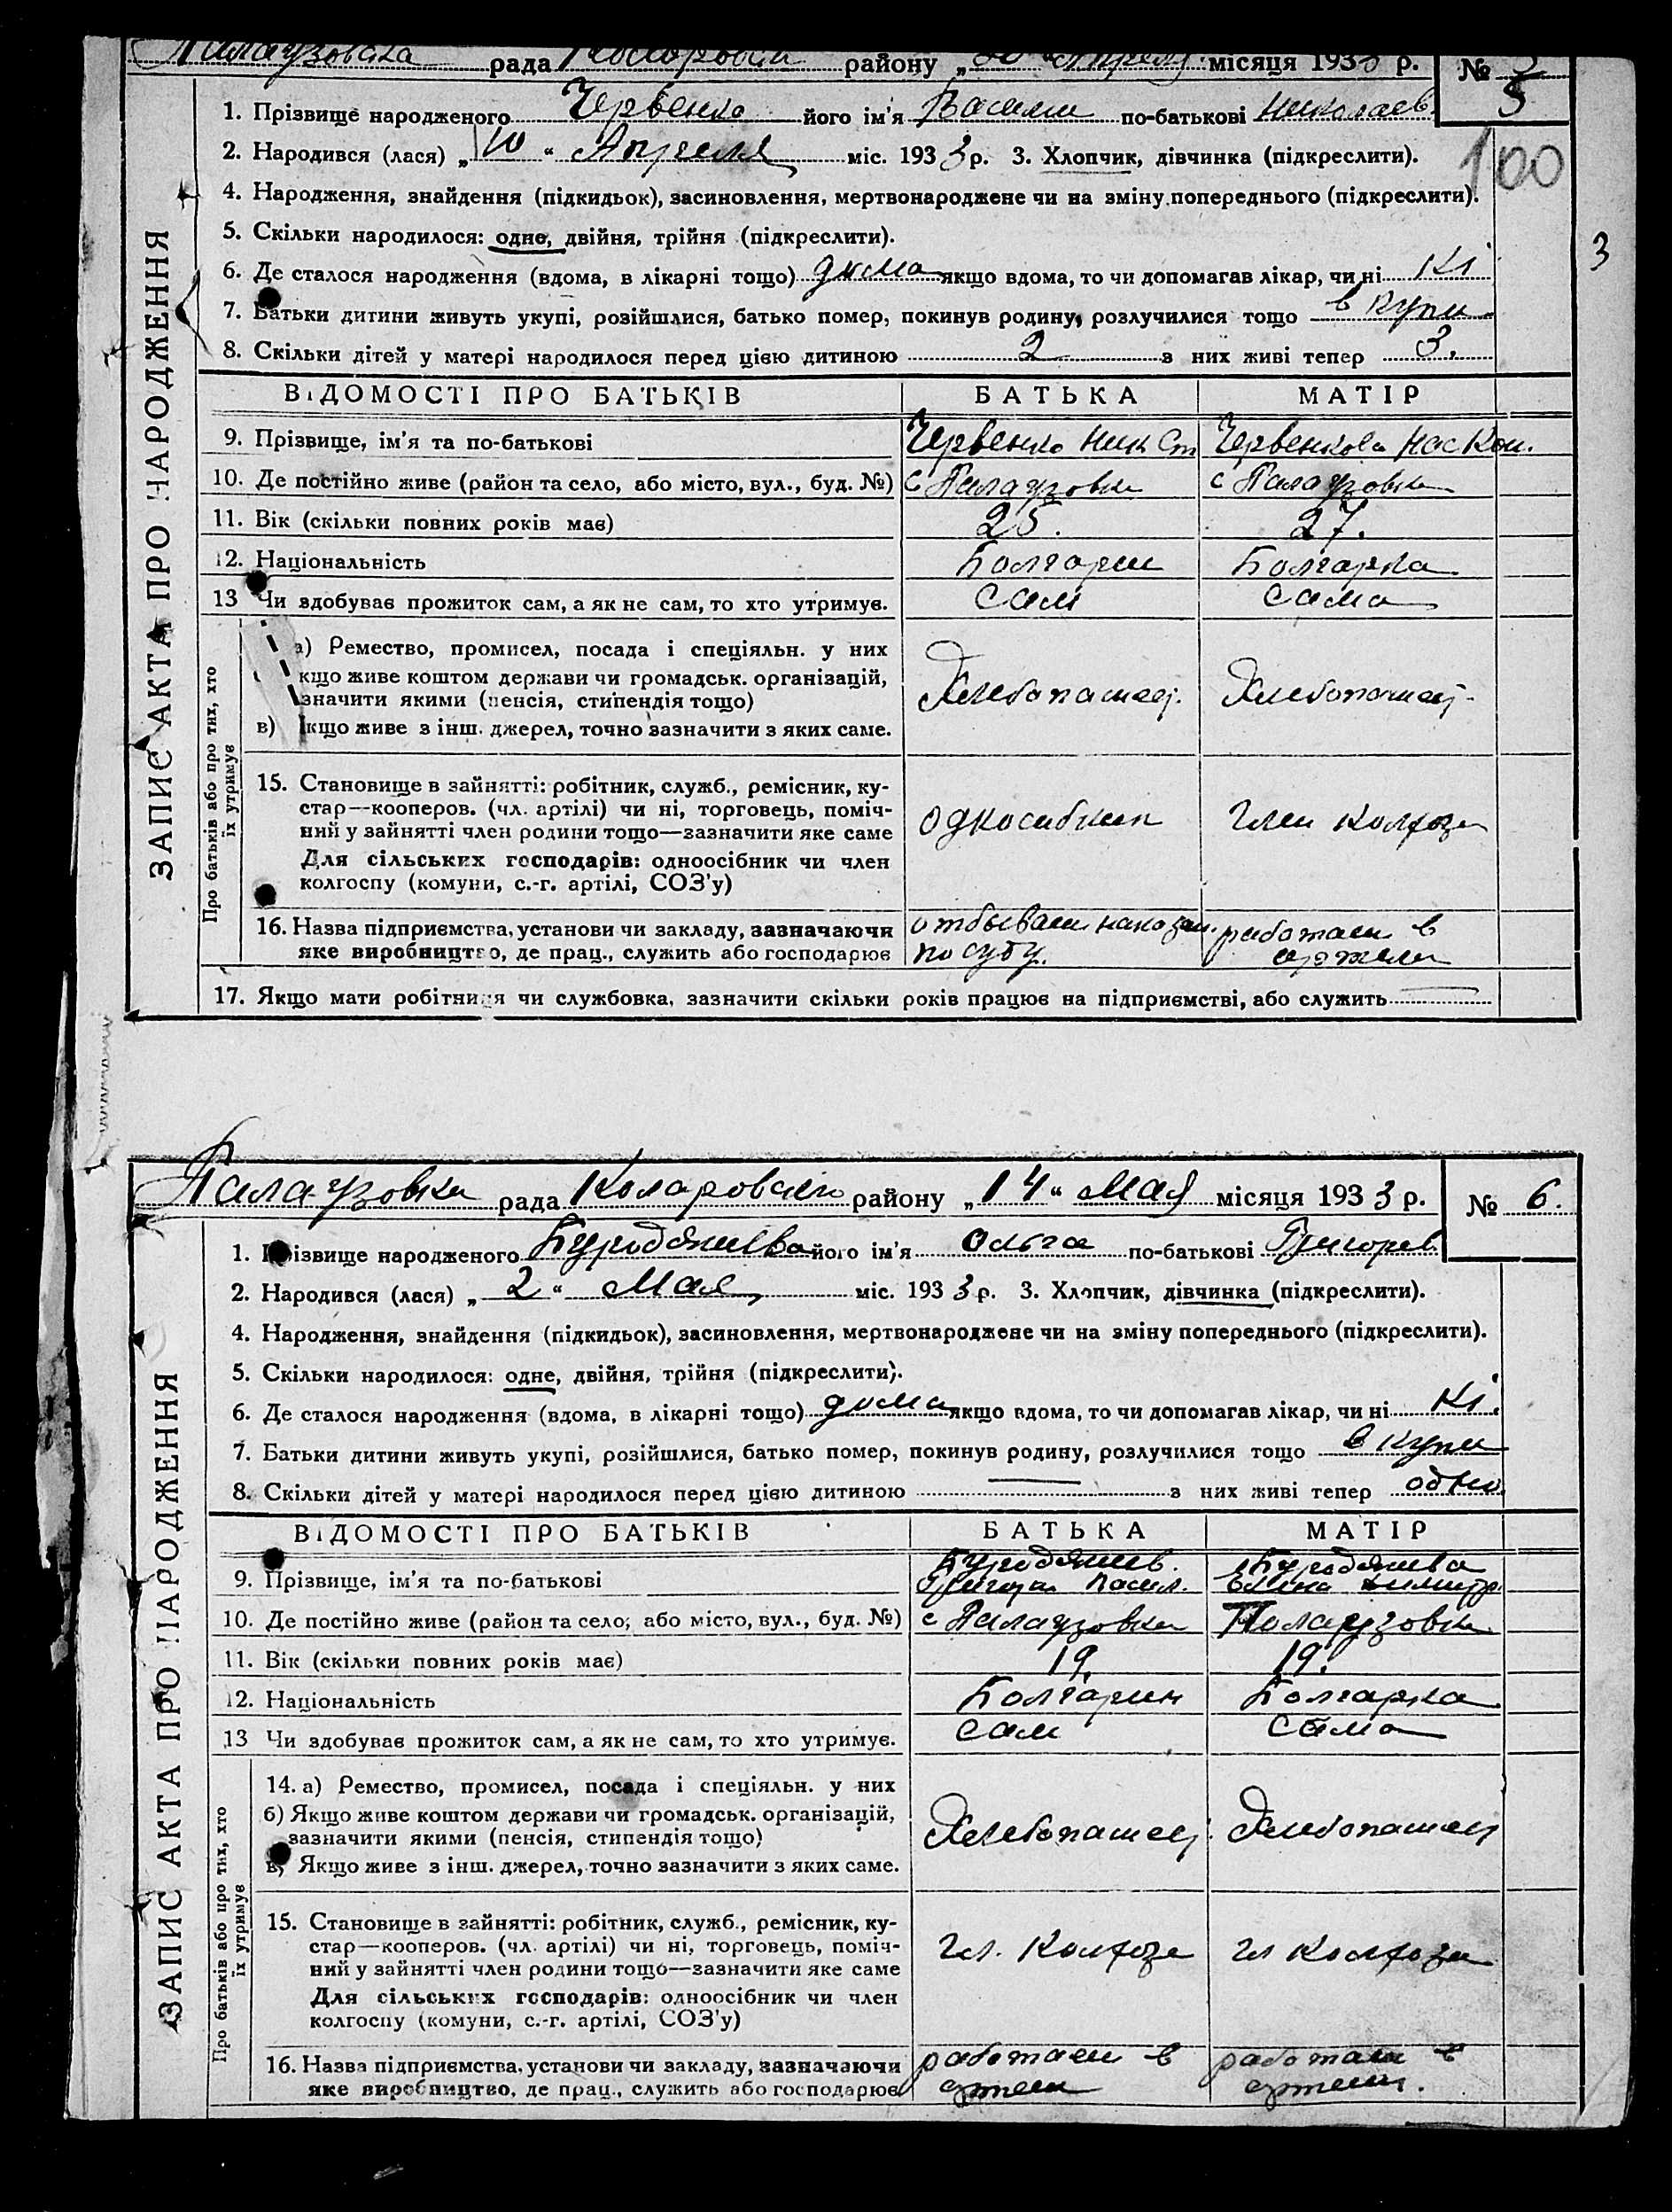 Палаузовска рада району „ “ місяця 1933 р. № 5
1. Прізвище народженого Червенко його ім'я Васили по-батькові Николаев
100
2. Народився (лася) „ 10 “ Апреля міс. 1933 р. 3. Хлопчик, дівчинка (підкреслити).
4. Народження, знайдення (підкидьок), засиновлення, мертвонароджене чи на зміну попереднього (підкреслити).
5. Скільки народилося: одне, двійня, трійня (підкреслити).
3
6. Де сталося народження (вдома, в лікарні тощо) дома якщо вдома, то чи допомагав лікар, чи ні Ні
7. Батьки дитини живуть укупі, розійшлися, батько помер, покинув родину, розлучилися тощо в купи
8. Скільки дітей у матері народилося перед цією дитиною 2 з них живі тепер 3.
ЗАПИС АКТА ПРО НАРОДЖЕННЯ
ВІДОМОСТІ ПРО БАТЬКІВ БАТЬКА МАТІР
9. Прізвище, ім'я та по-батькові Червенко Ник Ст Червенкова Нас Кон.
10. Де постійно живе (район та село, або місто, вул., буд. №) с Палаузовка с Палаузовка
11. Вік (скільки повних років має) 25. 27.
12. Національність Болгарин Болгарка
13 Чи здобуває прожиток сам, а як не сам, то хто утримує. Сам Сама
Про батьків або про тих, хто їх утримує
а) Ремество, промисел, посада і спеціяльн. у них
кщо живе коштом держави чи громадськ. організацій,
значити якими (пенсія, стипендія тощо) Хлебопашец. Хлебопашец
в) Якщо живе з інш. джерел, точно зазначити з яких саме.
15. Становище в зайнятті: робітник, служб., ремісник, ку-
стар—кооперов. (чл. артілі) чи ні, торговець, поміч-
ний у зайнятті член родини тощо—зазначити яке саме Односибник член колхоза
Для сільських господарів: одноосібник чи член
колгоспу (комуни, с.-г. артілі, СОЗ'у)
16. Назва підприємства, установи чи закладу, зазначаючи отбываи наказан. работаи в
яке виробництво, де прац., служить або господарює по суду. артели
17. Якщо мати робітниця чи службовка, зазначити скільки років працює на підприємстві, або служить
Палаузовка рада Коларовски району „ 14 “ Мая місяця 1933 р. № 6.
1. Прізвище народженого його ім'я Ольга по-батькові Григорев
2. Народився (лася) „ 2 “ Мая міс. 1933 р. 3. Хлопчик, дівчинка (підкреслити).
4. Народження, знайдення (підкидьок), засиновлення, мертвонароджене чи на зміну попереднього (підкреслити).
5. Скільки народилося: одне, двійня, трійня (підкреслити).
6. Де сталося народження (вдома, в лікарні тощо) дома якщо вдома, то чи допомагав лікар, чи ні Ні.
7. Батьки дитини живуть укупі, розійшлися, батько помер, покинув родину, розлучилися тощо в купи
8. Скільки дітей у матері народилося перед цією дитиною — з них живі тепер одно.
ЗАПИС АКТА ПРО НАРОДЖЕННЯ
ВІДОМОСТІ ПРО БАТЬКІВ БАТЬКА МАТІР
9. Прізвище, ім'я та по-батькові
10. Де постійно живе (район та село, або місто, вул., буд. №) с Палаузовка Палаузовка
11. Вік (скільки повних років має) 19. 19.
12. Національність Болгарин Болгарка
13 Чи здобуває прожиток сам, а як не сам, то хто утримує. Сам Сама
Про батьків або про тих, хто їх утримує
14. а) Ремество, промисел, посада і спеціяльн. у них
б) Якщо живе коштом держави чи громадськ. організацій,
зазначити якими (пенсія, стипендія тощо) Хлебопашец Хлебопашец
в) Якщо живе з інш. джерел, точно зазначити з яких саме.
15. Становище в зайнятті: робітник, служб., ремісник, ку-
стар—кооперов. (чл. артілі) чи ні, торговець, поміч-
ний у зайнятті член родини тощо—зазначити яке саме Чл. Колхоза Чл Колхоза
Для сільських господарів: одноосібник чи член
колгоспу (комуни, с.-г. артілі, СОЗ'у)
16. Назва підприємства, установи чи закладу, зазначаючи работаи в работаи в
яке виробництво, де прац., служить або господарює